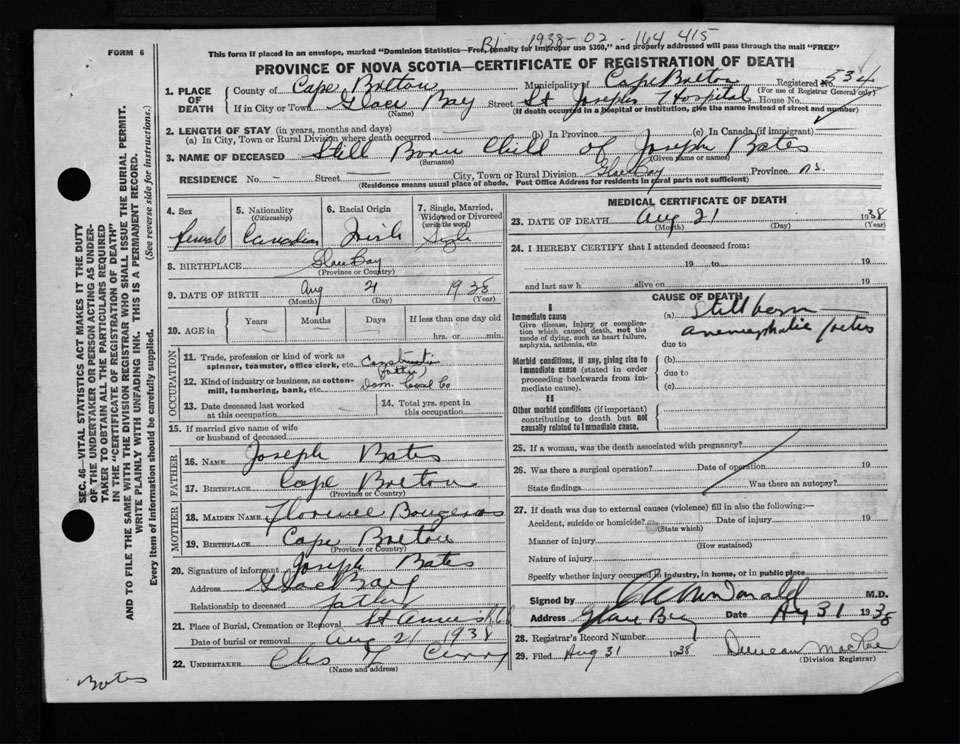 FORM 6
B1 1938-02-164 415
This form if placed in an envelope, marked "Dominion Statistics—Free, penalty for improper use $300," and properly addressed will pass through the mail "FREE"
PROVINCE OF NOVA SCOTIA—CERTIFICATE OF REGISTRATION OF DEATH
1. PLACE OF DEATH County of Cape Breton Municipality of Cape Breton Registered No. 534
(For use of Registrar General only)
If in City or Town Glace Bay Street St Josephs Hospital House No.
(Name) (If death occurred in a hospital or institution, give the name instead of street and number)
2. LENGTH OF STAY (in years, months and days)
(a) In City, Town or Rural Division where death occurred (b) In Province (c) In Canada (if immigrant)
3. NAME OF DECEASED Still Born Child of Joseph Bates
(Surname) (Given name or names)
RESIDENCE No. — Street — City, Town or Rural Division Glace Bay Province n.s.
(Residence means usual place of abode. Post Office Address for residents in rural parts not sufficient)
4. Sex Female
5. Nationality (Citizenship) Canadian
6. Racial Origin Irish
7. Single, Married, Widowed or Divorced (write the word) Single
8. BIRTHPLACE Glace Bay
(Province or Country)
9. DATE OF BIRTH Aug 21 1938
(Month) (Day) (Year)
10. AGE in Years Months Days If less than one day old
hrs. or min.
OCCUPATION
11. Trade, profession or kind of work as spinner, teamster, office clerk, etc. Construction
(father)
12. Kind of industry or business, as cotton-mill, lumbering, bank, etc. Dom. Coal Co
13. Date deceased last worked at this occupation
14. Total yrs. spent in this occupation
15. If married give name of wife or husband of deceased
FATHER
16. NAME Joseph Bates
17. BIRTHPLACE Cape Breton
(Province or Country)
MOTHER
18. MAIDEN NAME Florence
19. BIRTHPLACE Cape Breton
(Province or Country)
20. Signature of informant Joseph Bates
Address Glace Bay
Relationship to deceased father
21. Place of Burial, Cremation or Removal St Annes
Date of burial or removal Aug 21 1938
22. UNDERTAKER Chas Curry
(Name and address)
MEDICAL CERTIFICATE OF DEATH
23. DATE OF DEATH Aug 21 1938
(Month) (Day) (Year)
24. I HEREBY CERTIFY that I attended deceased from:
19 to 19
and last saw h alive on 19
CAUSE OF DEATH
I
Immediate cause (a) Stillborn
Give disease, injury or complication which caused death, not the mode of dying, such as heart failure, asphyxia, asthenia, etc.
anencephalic foetus
due to
Morbid conditions, if any, giving rise to immediate cause (stated in order proceeding backwards from immediate cause).
(b)
due to
(c)
II
Other morbid conditions (if important) contributing to death but not causally related to immediate cause.
25. If a woman, was the death associated with pregnancy?
26. Was there a surgical operation? Date of operation 19
State findings Was there an autopsy?
27. If death was due to external causes (violence) fill in also the following:—
Accident, suicide or homicide? Date of injury 19
(State which)
Manner of injury
(How sustained)
Nature of injury
Specify whether injury occurred in industry, in home, or in public place
Signed by McDonald M.D.
Address Glace Bay Date Aug 31 1938
28. Registrar's Record Number
29. Filed Aug 31 1938 Duncan MacRae
(Division Registrar)
SEC. 46—VITAL STATISTICS ACT MAKES IT THE DUTY
OF THE UNDERTAKER OR PERSON ACTING AS UNDER-
TAKER TO OBTAIN ALL THE PARTICULARS REQUIRED
IN THE "CERTIFICATE OF REGISTRATION OF DEATH"
AND TO FILE THE SAME WITH THE DIVISION REGISTRAR WHO SHALL ISSUE THE BURIAL PERMIT.
WRITE PLAINLY WITH UNFADING INK. THIS IS A PERMANENT RECORD.
Every item of information should be carefully supplied. (See reverse side for instructions.)
Bates